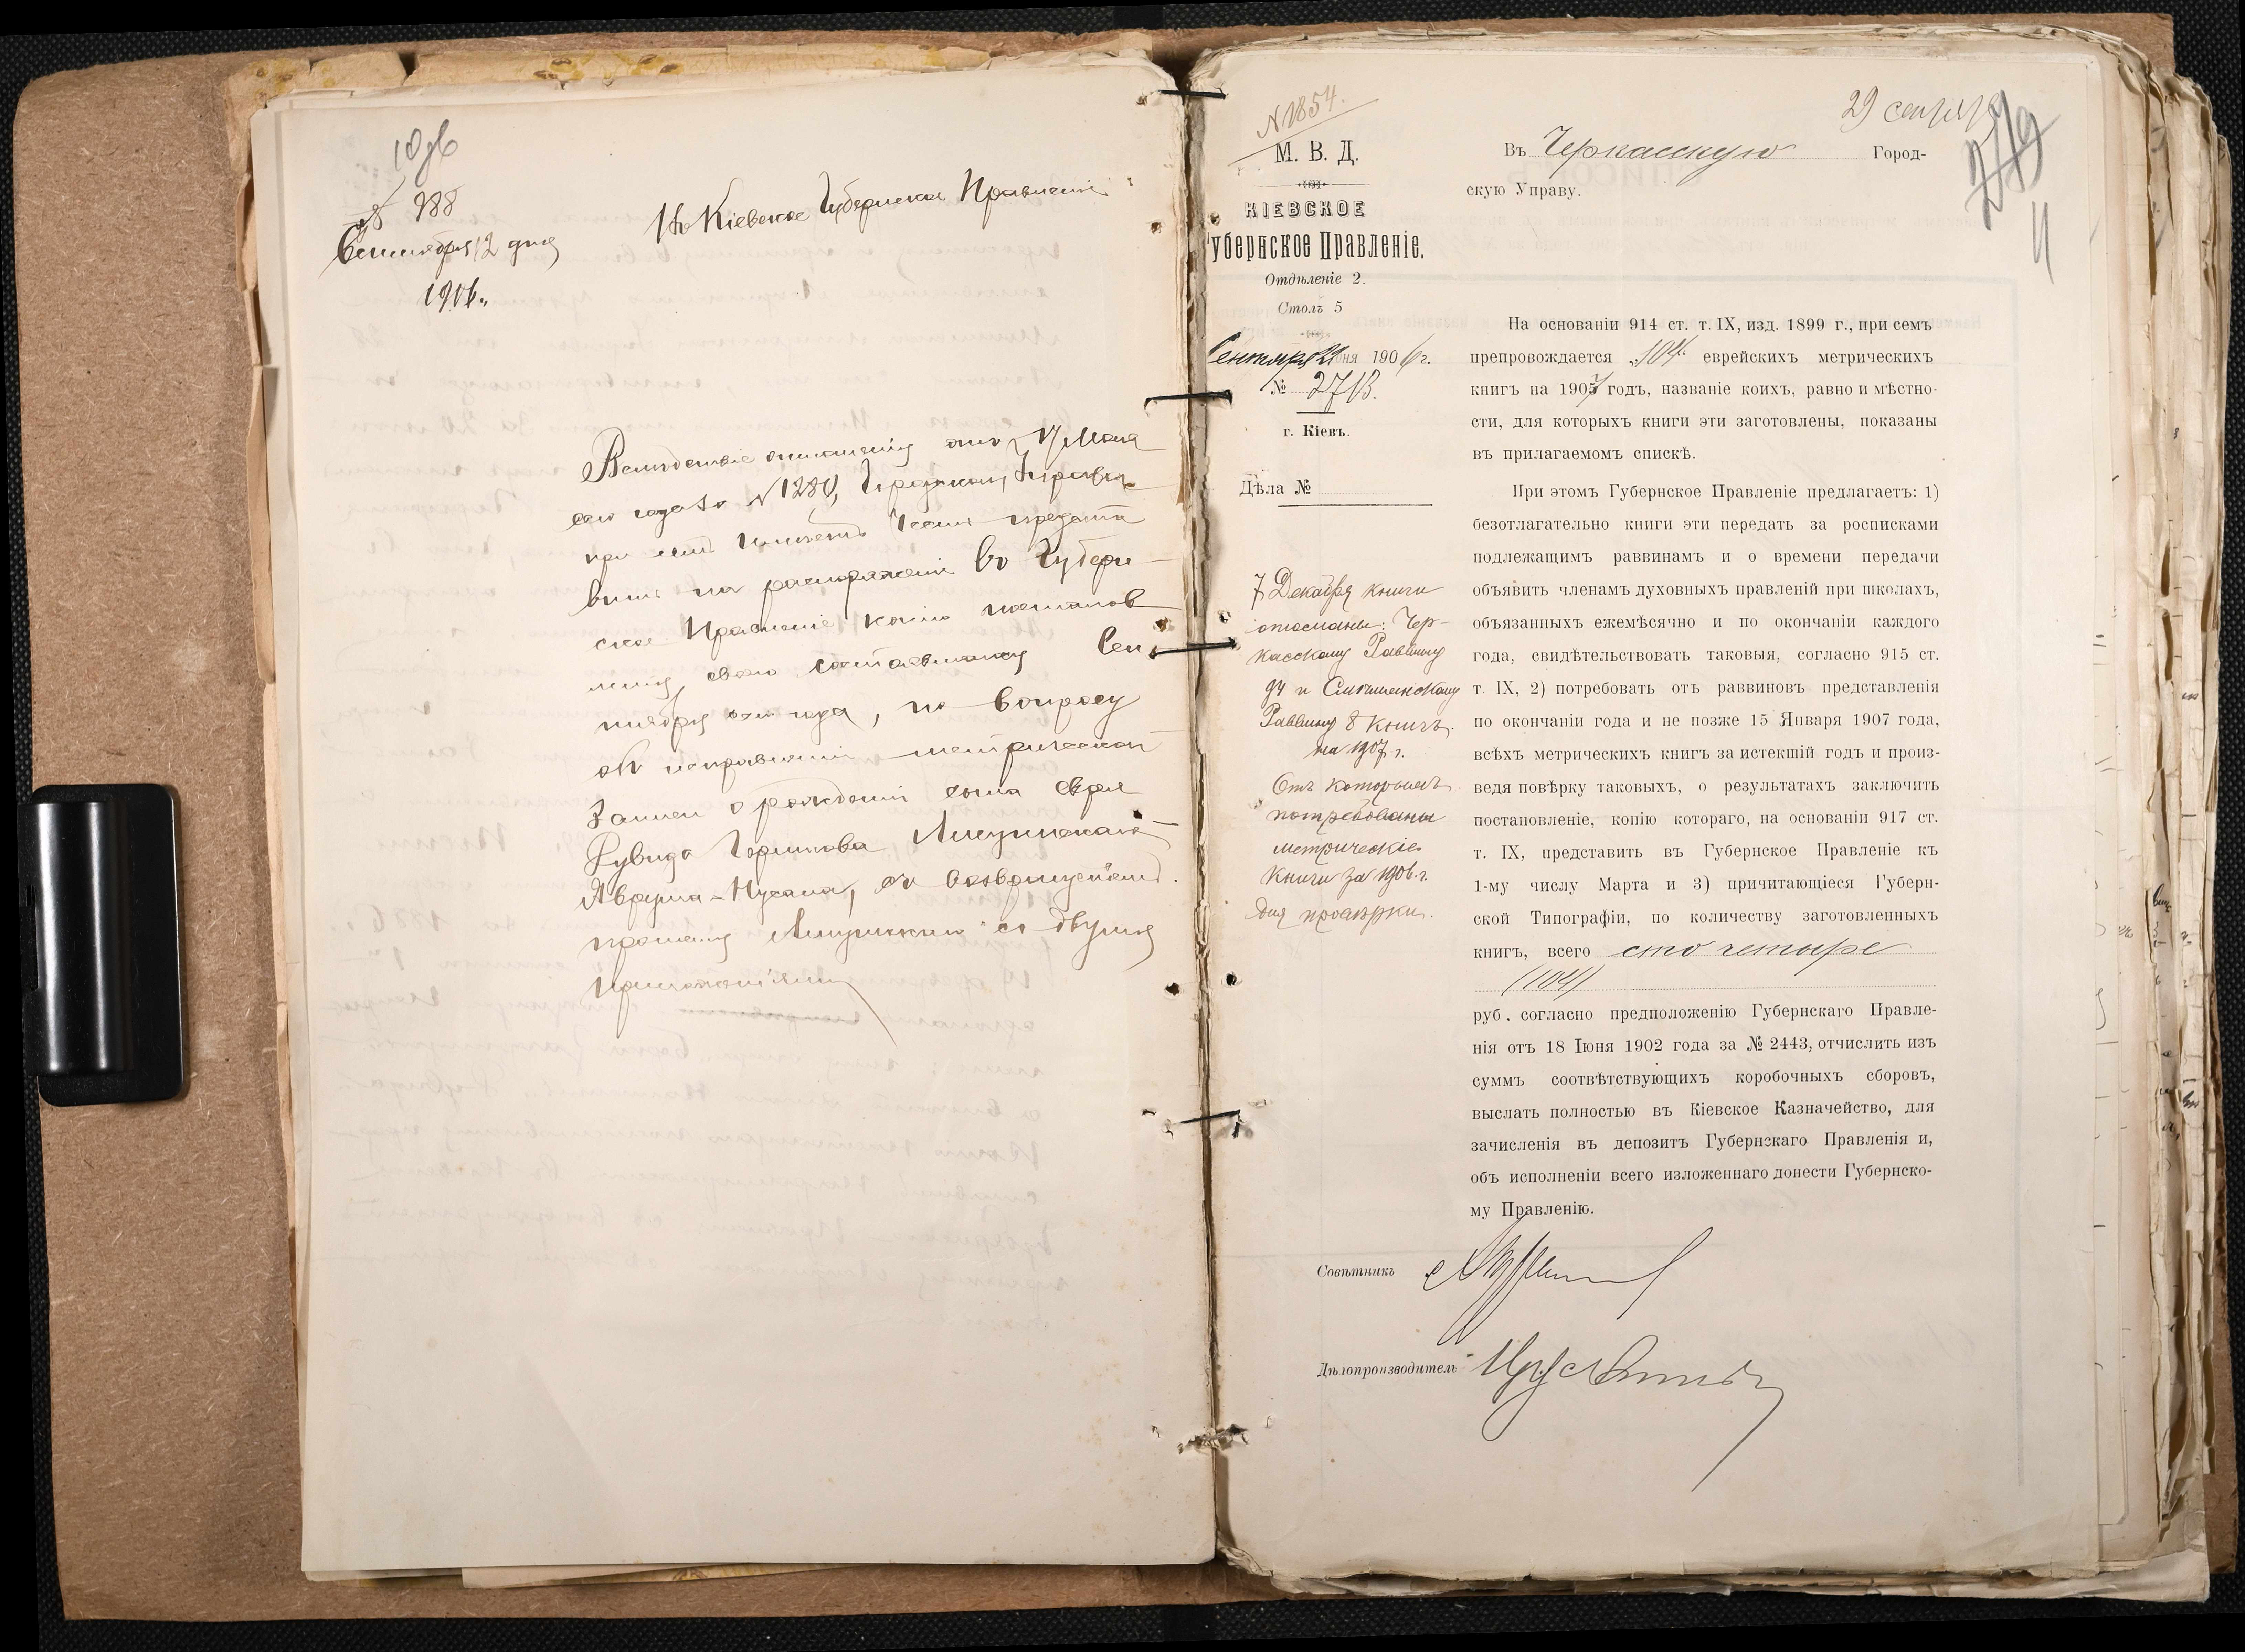 № 988
Сентября 12 дня
1906 г.
Въ Кіевское Губернское Правленіе
Вслѣдствіе отношенія отъ 17 Мая
сего года за № 1280, Городская Управа
при семъ имѣетъ честь предста
вить на распоряженіе въ Губерн-
ское Правленіе копію постанов
ленія, своего состоявшагося Сен
тября сего года, по вопросу
объ исправленіи метрической
записи о рожденіи сына еврея
Рувида Гершкова
Аврума-Нусана, съ возвращеніемъ
прошенія съ двумя
приложеніями
N 1854.
29 сентября
279
11
М. В. Д.
КІЕВСКОЕ
убернское Правленіе.
Отдѣленіе 2.
Столъ 5
Сентября 21 дня 1906 г.
№ 2713.
г. Кіевъ.
Дѣла №
7 Декабря книги
отосланы: Чер-
касскому Раввину
94 и Смѣлянскому
Раввину 8 книгъ.
на 1907 г.
Отъ которыхъ
потребованы
метрическіе
книги за 1906 г.
для провѣрки.
Въ Черкасскую Город-
скую Управу.
На основаніи 914 ст. т. IX, изд. 1899 г., при семъ
препровождается 104 еврейскихъ метрическихъ
книгъ на 1907 годъ, названіе коихъ, равно и мѣстно-
сти, для которыхъ книги эти заготовлены, показаны
въ прилагаемомъ спискѣ.
При этомъ Губернское Правленіе предлагаетъ: 1)
безотлагательно книги эти передать за росписками
подлежащимъ раввинамъ и о времени передачи
объявить членамъ духовныхъ правленій при школахъ,
объязанныхъ ежемѣсячно и по окончаніи каждого
года, свидѣтельствовать таковыя, согласно 915 ст.
т. IX, 2) потребовать отъ раввиновъ представленія
по окончаніи года и не позже 15 Января 1907 года,
всѣхъ метрическихъ книгъ за истекшій годъ и произ-
ведя повѣрку таковыхъ, о результатахъ заключить
постановленіе, копію котораго, на основаніи 917 ст.
т. IX, представить въ Губернское Правленіе къ
1-му числу Марта и 3) причитающіеся Губерн-
ской Типографіи, по количеству заготовленныхъ
книгъ, всего сто четыре
(104)
руб. согласно предположенію Губернскаго Правле-
нія отъ 18 Іюня 1902 года за № 2443, отчислить изъ
суммъ соотвѣтствующихъ коробочныхъ сборовъ,
выслать полностью въ Кіевское Казначейство, для
зачисленія въ депозитъ Губернскаго Правленія и,
объ исполненіи всего изложеннаго донести Губернско-
му Правленію.
Совѣтникъ
Дѣлопроизводитель